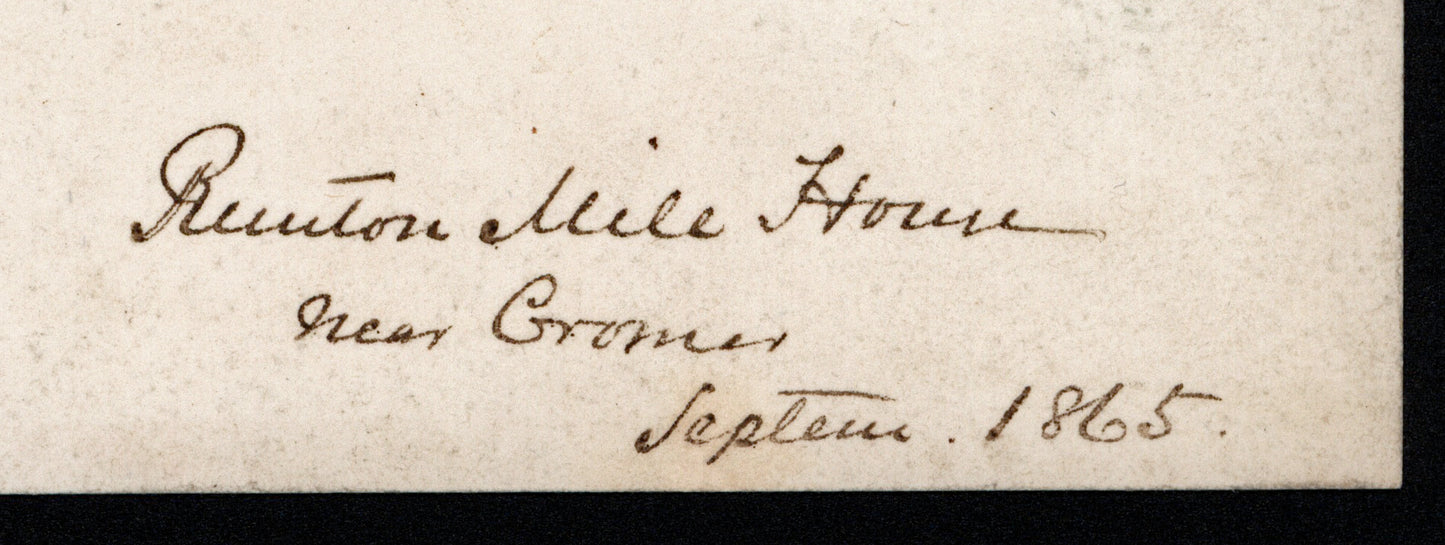 Runton Mill House
near Cromer
Septem. 1865.